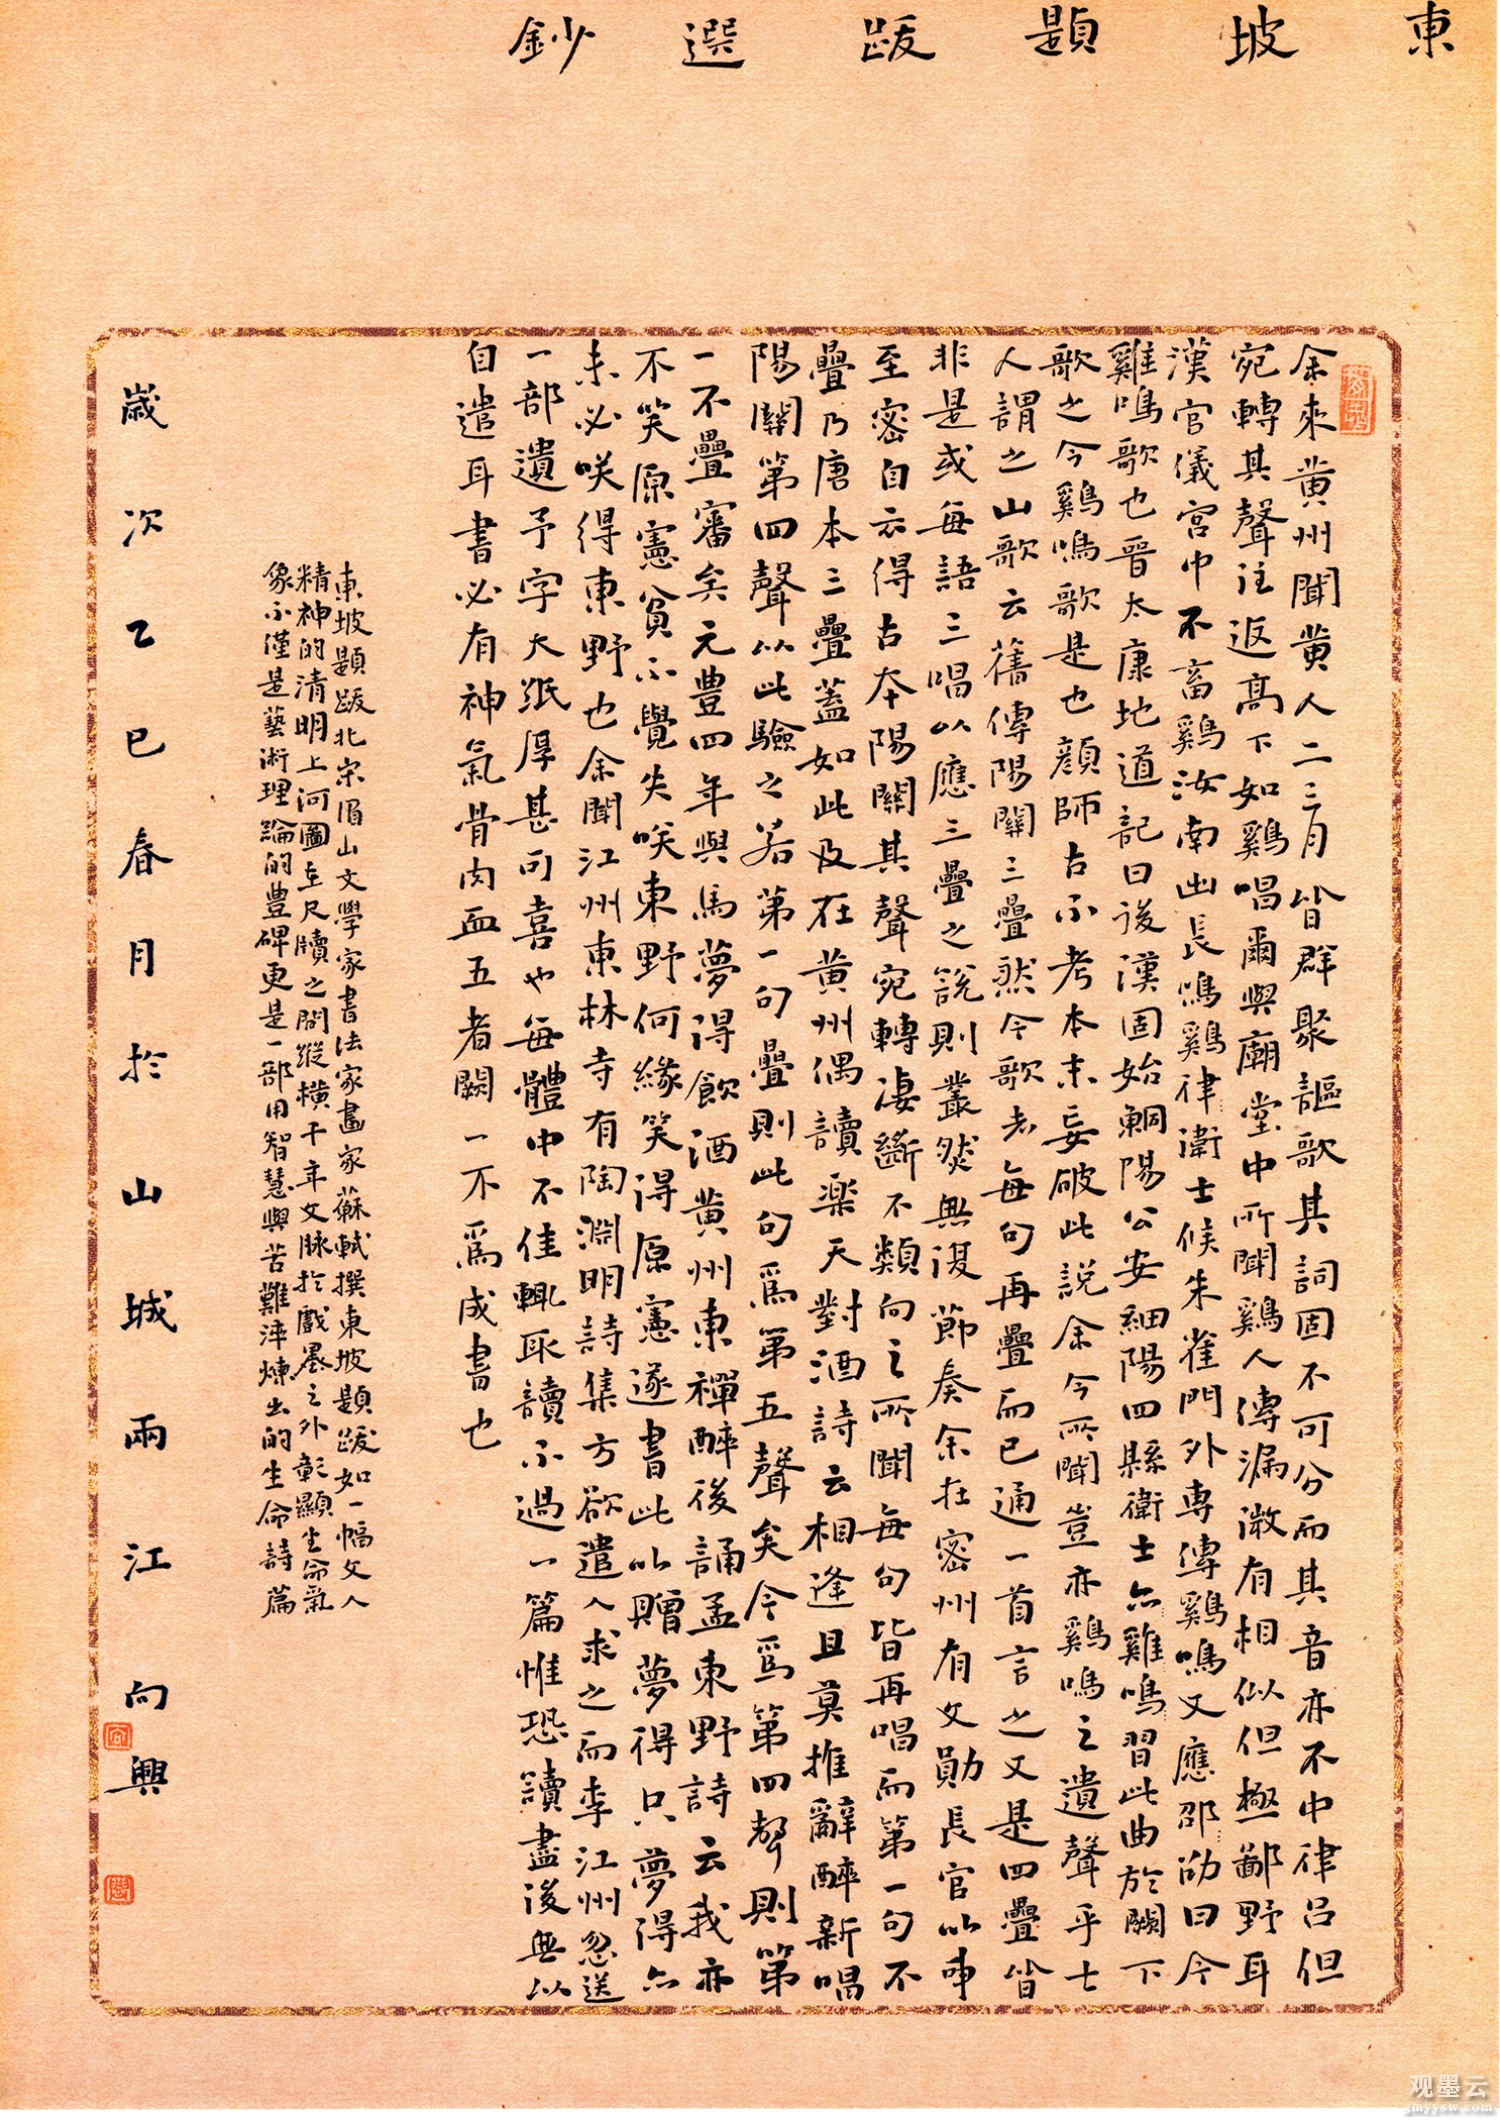 東坡題跋選鈔
余來黄州聞黄人二三月皆群聚謳歌其詞固不可分而其音亦不中律呂但
宛轉其聲往返高下如鷄唱爾與廟堂中所聞鷄人傳漏微有相似但極鄙野耳
漢官儀宮中不畜鷄汝南出長鳴鷄律衛士候朱雀門外専傳鷄鳴又應邵劭曰今
雞鳴歌也晉太康地道記曰後漢固始鮦陽公安細陽四縣衛士亦雞鳴習此曲於闕下
歌之今鷄鳴歌是也顔師古不考本末妄破此說余今所聞豈亦鷄鳴之遺聲乎士
人謂之山歌云舊傳陽關三疊然今歌者每句再疊而已通一首言之又是四疊皆
非是或每語三唱以應三疊之說則叢然無復節奏余在密州有文勛長官以事
至密自云得古本陽關其聲宛轉淒斷不類向之所聞每句皆再唱而第一句不
疊乃唐本三疊蓋如此及在黄州偶讀樂天對酒詩云相逢且莫推辭醉新唱
陽關第四聲以此驗之若第一句疊則此句爲第五聲矣今爲第四聲則第
一不疊審矣元豊四年與馬夢得飲酒黄州東禪醉後誦孟東野詩云我亦
不笑原憲貧不覺失咲東野何緣笑得原憲遂書此以贈夢得只夢得亦
未必咲得東野也余聞江州東林寺有陶淵明詩集方欲遣人求之而李江州忽送
一部遺予字大紙厚甚可喜也每體中不佳輒取讀不過一篇惟恐讀盡後無以
自遣耳書必有神氣骨肉血五者闕一不爲成書也
東坡題跋北宋眉山文學家書法家畫家蘇軾撰東坡題跋如一幅文人
精神的清明上河圖在尺牘之間縱横千年文脉於戲墨之外彰顯生命氣
象不僅是藝術理論的豊碑更是一部用智慧與苦難淬煉出的生命詩篇
歲次乙巳春月於山城兩江向興
观墨云
gmyysw.com